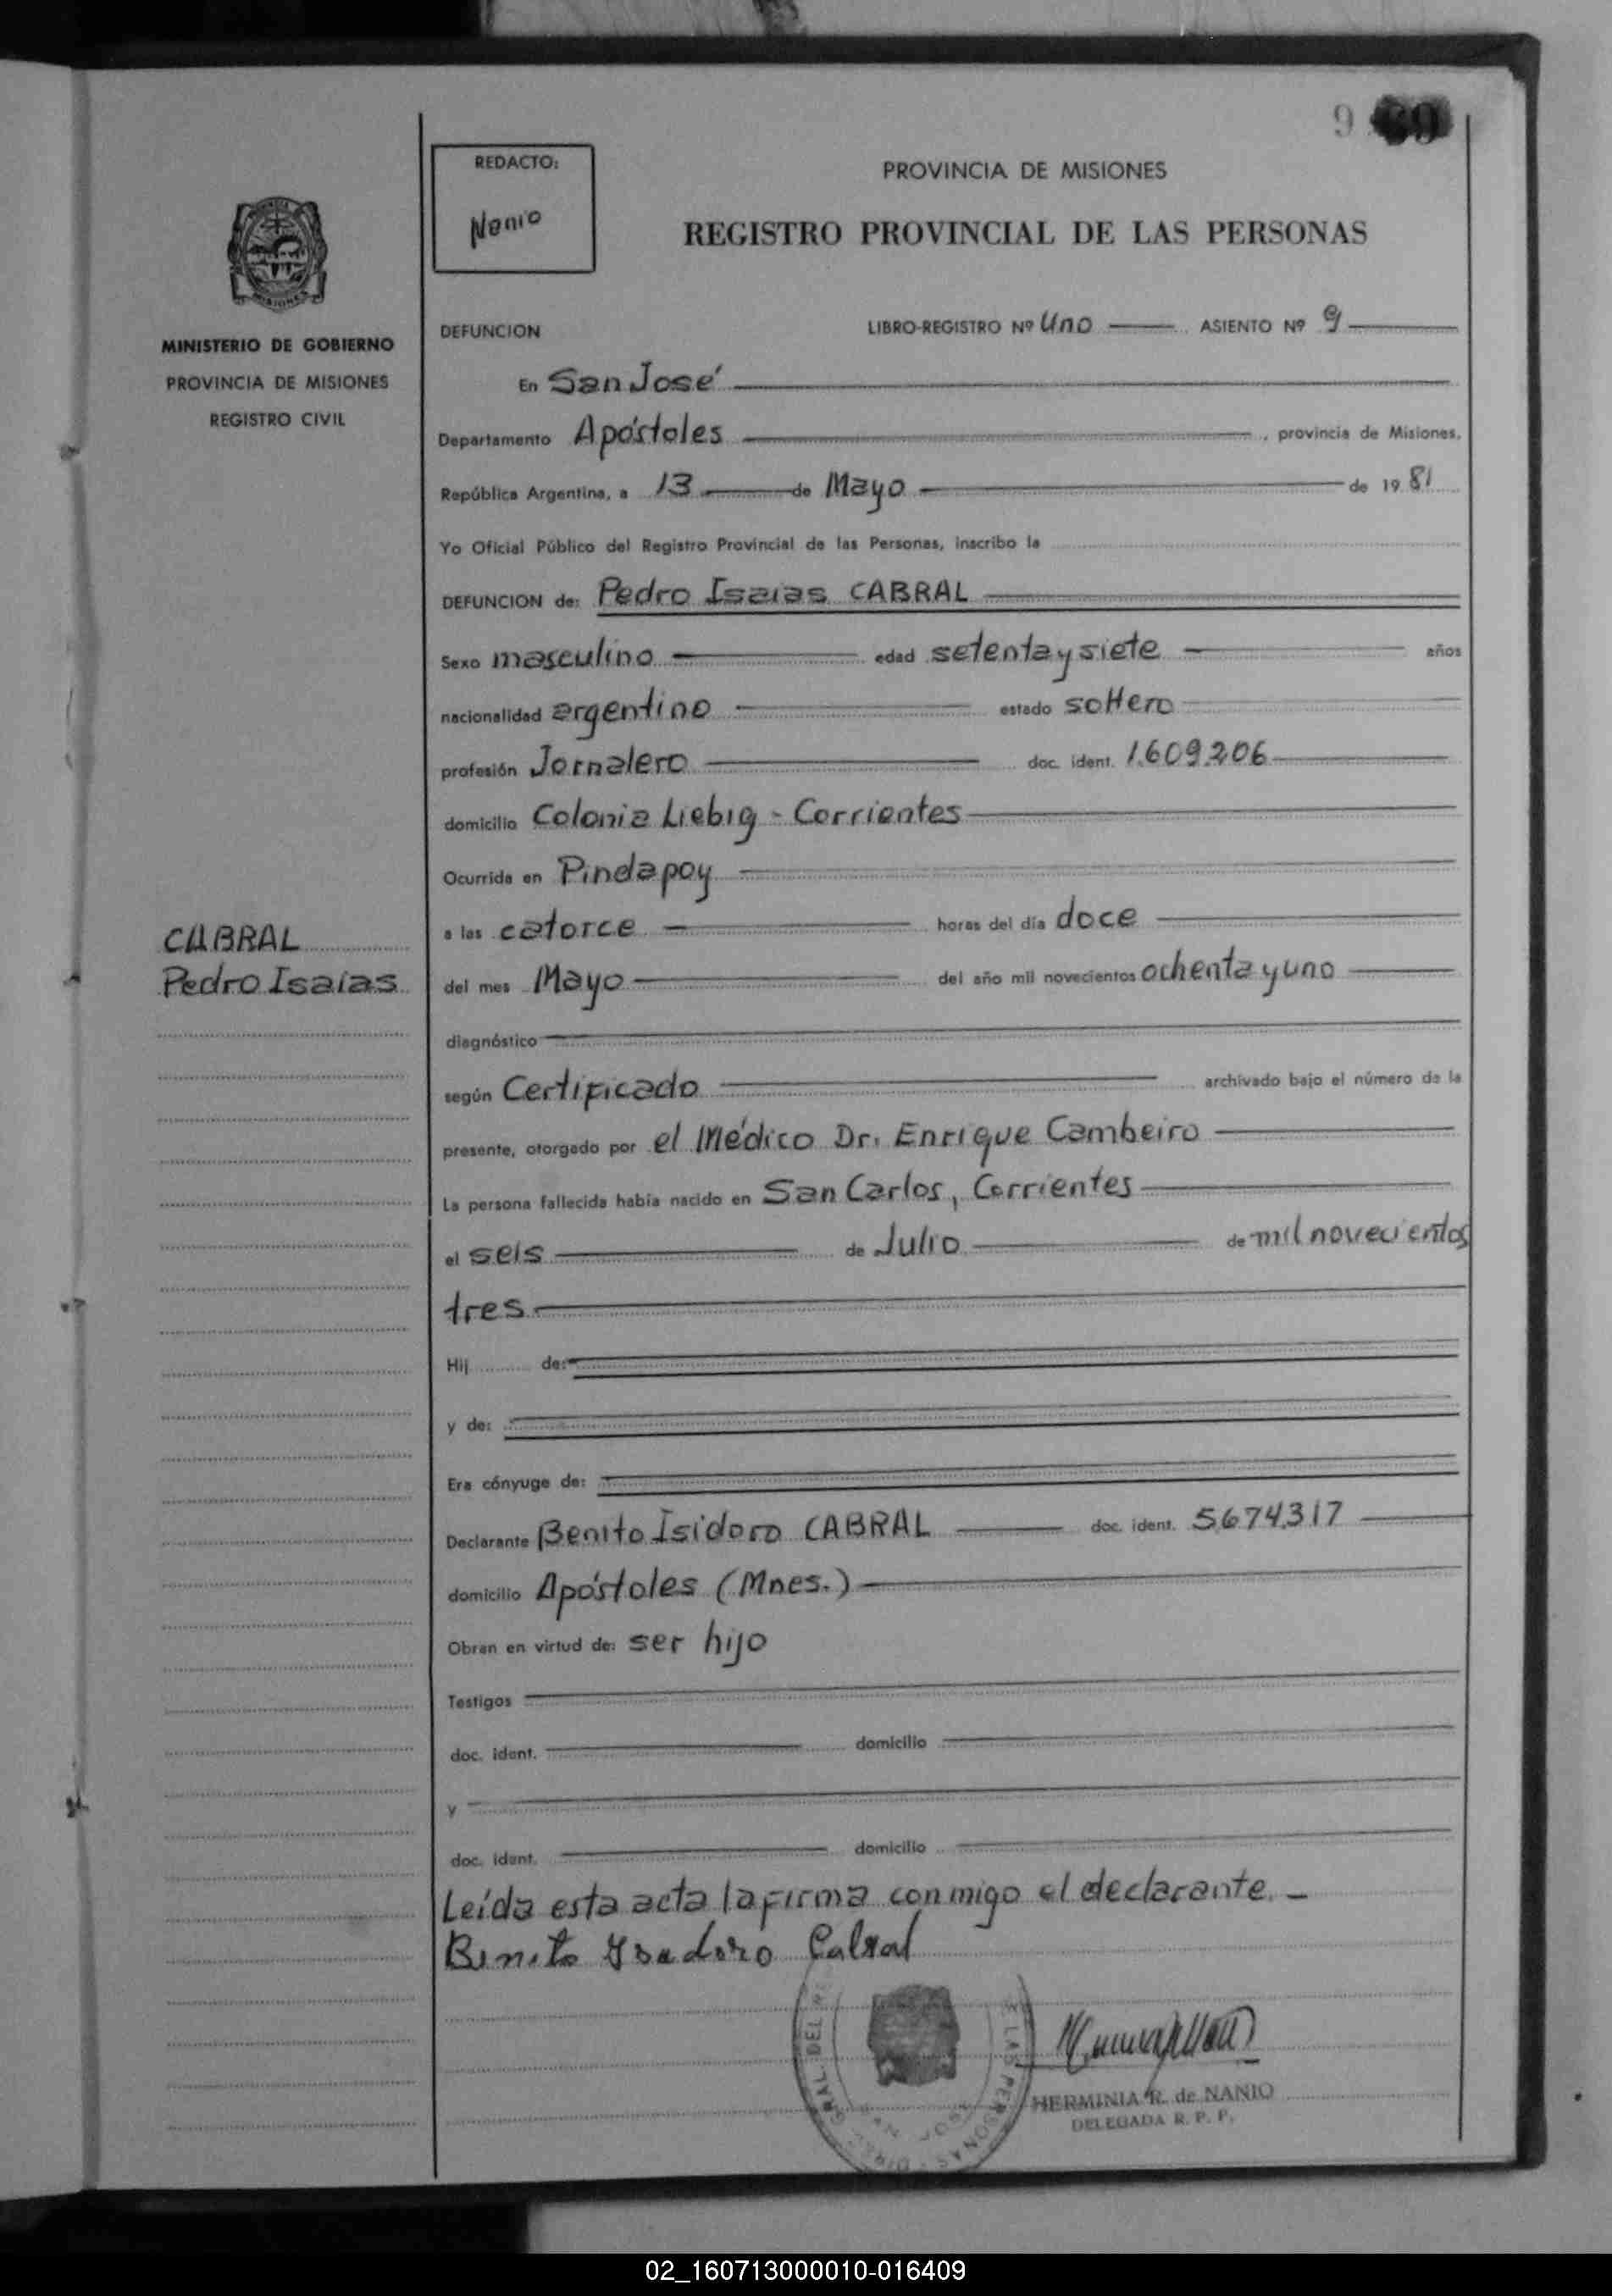 9 69
REDACTO:
Nanio
PROVINCIA DE MISIONES
REGISTRO PROVINCIAL DE LAS PERSONAS
MISIONES
MINISTERIO DE GOBIERNO
PROVINCIA DE MISIONES
REGISTRO CIVIL
DEFUNCION
LIBRO-REGISTRO Nº Uno ASIENTO Nº 9
En San José
Departamento Apóstoles, provincia de Misiones,
República Argentina, a 13 de Mayo de 1981
Yo Oficial Público del Registro Provincial de las Personas, inscribo la
DEFUNCION de: Pedro Isaias CABRAL
Sexo masculino edad setenta y siete años
nacionalidad argentino estado soltero
profesión Jornalero doc. ident. 1.609.206
domicilio Colonia Liebig - Corrientes
Ocurrida en Pindapoy
a las catorce horas del día doce
CABRAL
Pedro Isaías
del mes Mayo del año mil novecientos ochenta y uno
diagnóstico
según Certificado archivado bajo el número de la
presente, otorgado por el Médico Dr. Enrique Cambeiro
La persona fallecida había nacido en San Carlos, Corrientes
el seis de Julio de mil novecientos
tres
Hij de:
y de:
Era cónyuge de:
Declarante Benito Isidoro CABRAL doc. ident. 5.674.317
domicilio Apóstoles (Mnes.)
Obran en virtud de: ser hijo
Testigos
doc. ident. domicilio
y
doc. ident. domicilio
Leída esta acta la firma conmigo el declarante. -
Benito Ysadoro Cabral
HERMINIA R. de NANIO
DELEGADA R. P. P.
02_160713000010-016409